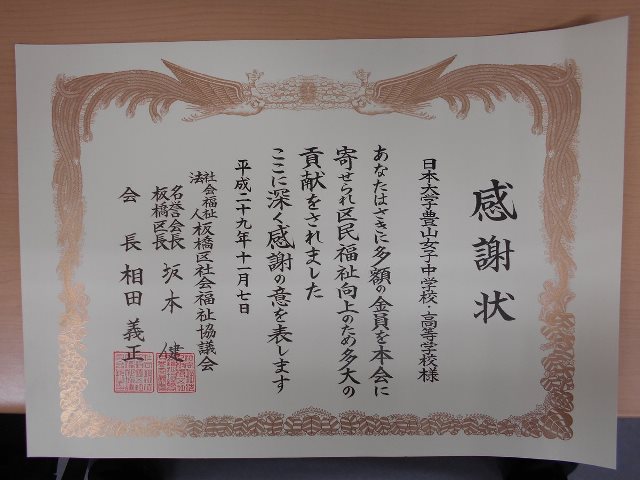 感謝状
日本大学豊山女子中学校・高等学校様
あなたはさきに多額の金員を本会に
寄せられ区民福祉向上のため多大の
貢献をされました
ここに深く感謝の意を表します
平成二十九年十一月七日
社会福祉法人 板橋区社会福祉協議会
名誉会長 板橋区長 坂本 健
会長 相田 義正